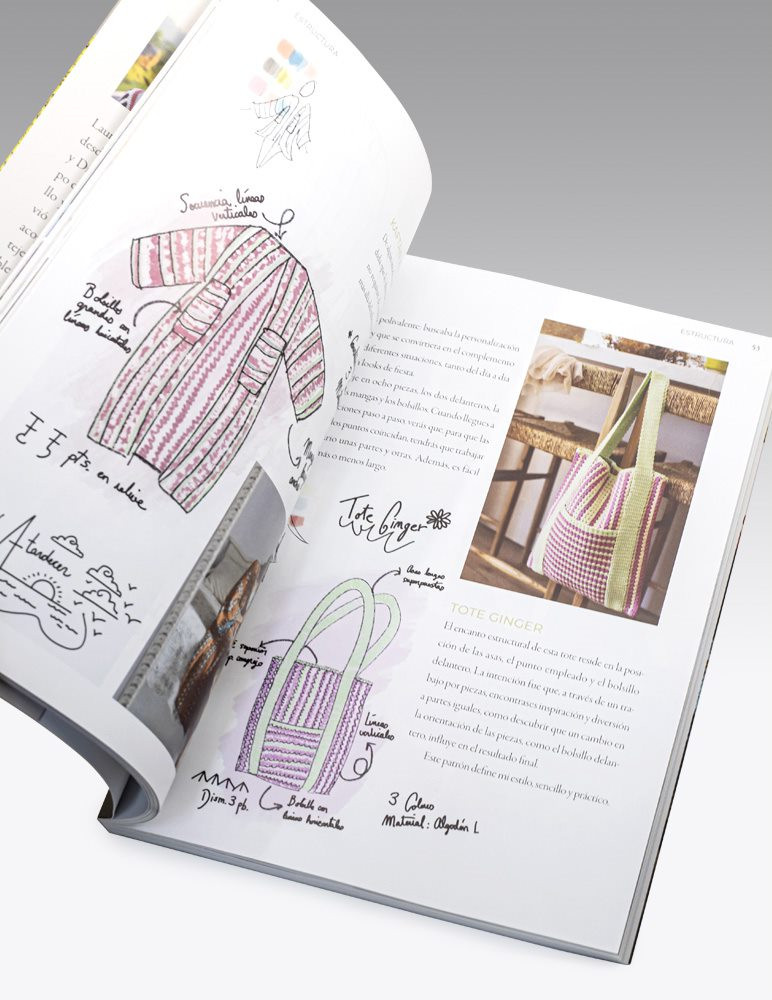 ESTRUCTURA
Secuencia líneas
verticales
Bolsillos
grandes con
líneas horizontales
pts. en relieve
Atardecer
ESTRUCTURA 53
polivalente: buscaba la personalización
y que se convirtiera en el complemento
diferentes situaciones, tanto del día a día
looks de fiesta.
je en ocho piezas, los dos delanteros, la
mangas y los bolsillos. Cuando llegues a
ciones paso a paso, verás que, para que las
os puntos coincidan, tendrás que trabajar
rno unas partes y otras. Además, es fácil
más o menos largo.
Tote Ginger
Asas largas
superpuestas
Líneas
verticales
Dism. 3 pb.
Bolsillo con
líneas horizontales
3 Colores
Material: Algodón L
TOTE GINGER
El encanto estructural de esta tote reside en la posi-
ción de las asas, el punto empleado y el bolsillo
delantero. La intención fue que, a través de un tra-
bajo por piezas, encontrases inspiración y diversión
a partes iguales, como descubrir que un cambio en
la orientación de las piezas, como el bolsillo delan-
tero, influye en el resultado final.
Este patrón define mi estilo, sencillo y práctico.